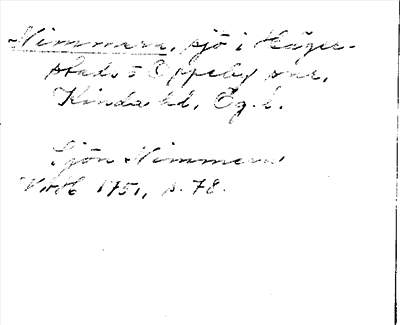 Nimmern, sjö i Häge-
stads o Oppeby snr,
Kinda hd, Ög. l.
Sjön Nimmern
VittH 1751, s. 78.